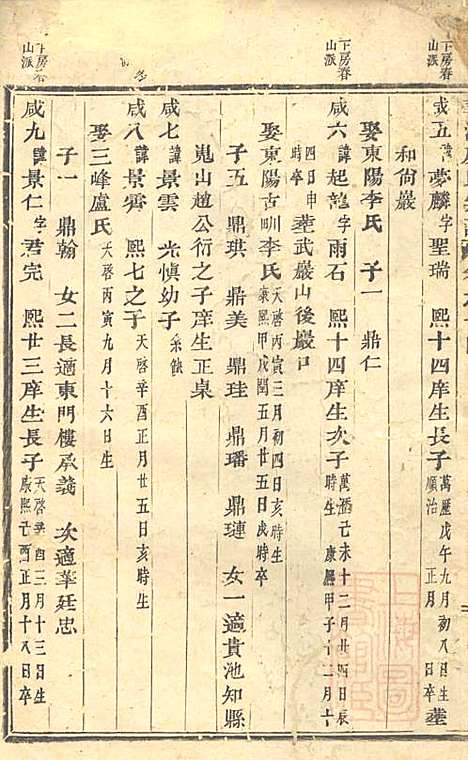 下房春山派
咸五 諱夢麟 字聖瑞 熙十四庠生長子 萬曆戊午九月初八日生 順治 正月 日卒 葬
和尙巖
娶東陽李氏 子一 鼎仁
下房春山派
咸六 諱起龍 字雨石 熙十四庠生次子 萬曆己未十二月廿四日辰時生 康熙甲子十二月十
四日申時卒 葬武巖山後巖
娶東陽古李氏 天啓丙寅三月初四日亥時生 康熙甲戌閏五月廿五日戌時卒
子五 鼎琪 鼎美 鼎珪 鼎璠 鼎璉 女一適貴池知縣
嵬山趙公衍之子庠生正桌
咸七 諱景雲 光愼幼子 系缺
咸八 諱景霽 熙七之子 天啓辛酉正月廿五日亥時生
娶三峰盧氏 天啓丙寅九月十六日生
子一 鼎翰 女二長適東門樓承義 次適葦廷忠
下房春山派
咸九 諱景仁 字君完 熙廿三庠生長子 天啓辛酉三月十三日生 康熙己酉正月十八日卒